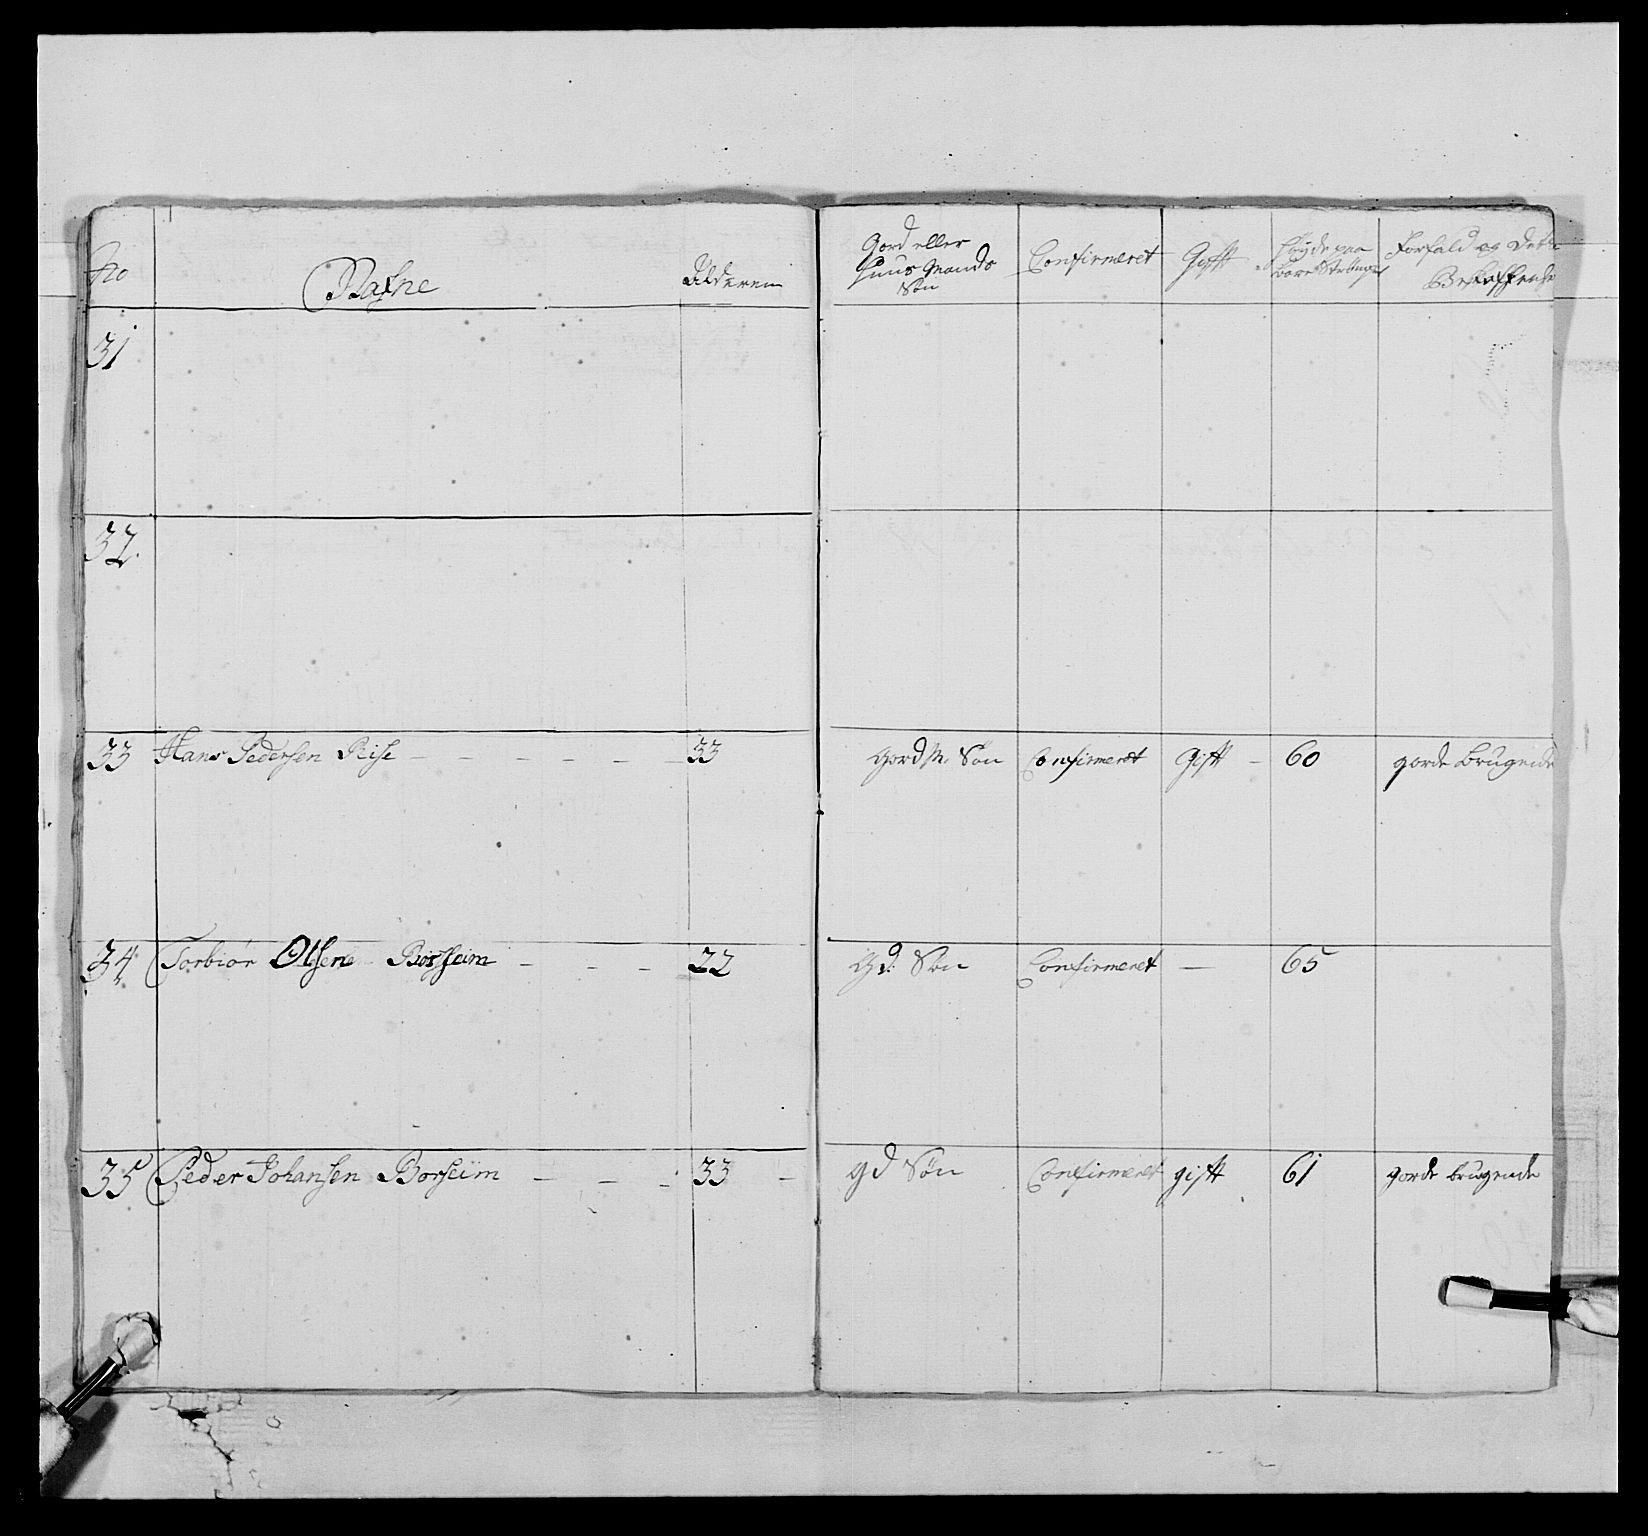 No Nafne Alderen Gord eller Huus Mands Søn Confirmeret Gift Høyde paa bare Strømper Forfald og Dets Beskaffenhe
31
32.
33 Hans Pedersen Riise - - - - - - 33 gord M. Søn Confirmeret Gift - 60 gorde brugende
34 Torbiør Olsen Borseim - - - 22 gd. Søn Confirmeret - 65
35 Peder Johansen Borseim - - - 33 - gd Søn Confirmeret gift 61 gorde brugende